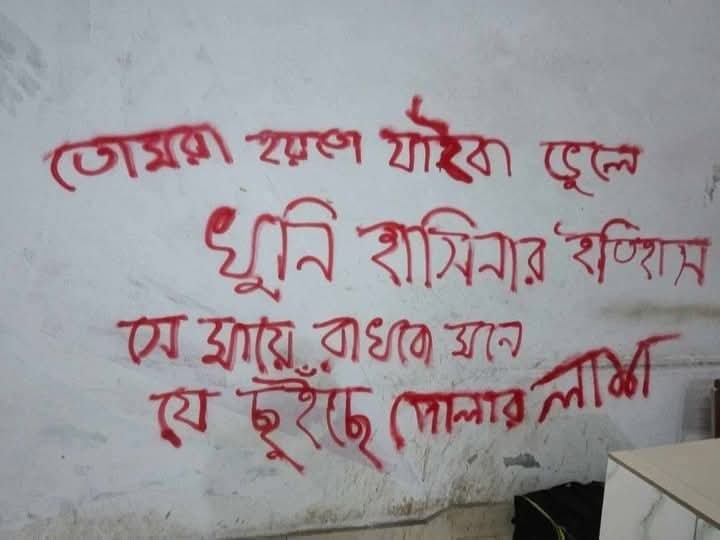 তোমরা হয়তো যাইবা ভুলে
খুনি হাসিনার ইতিহাস
সে মায়ে রাখবো মনে
যে ছুঁইছে পোলার লাশ